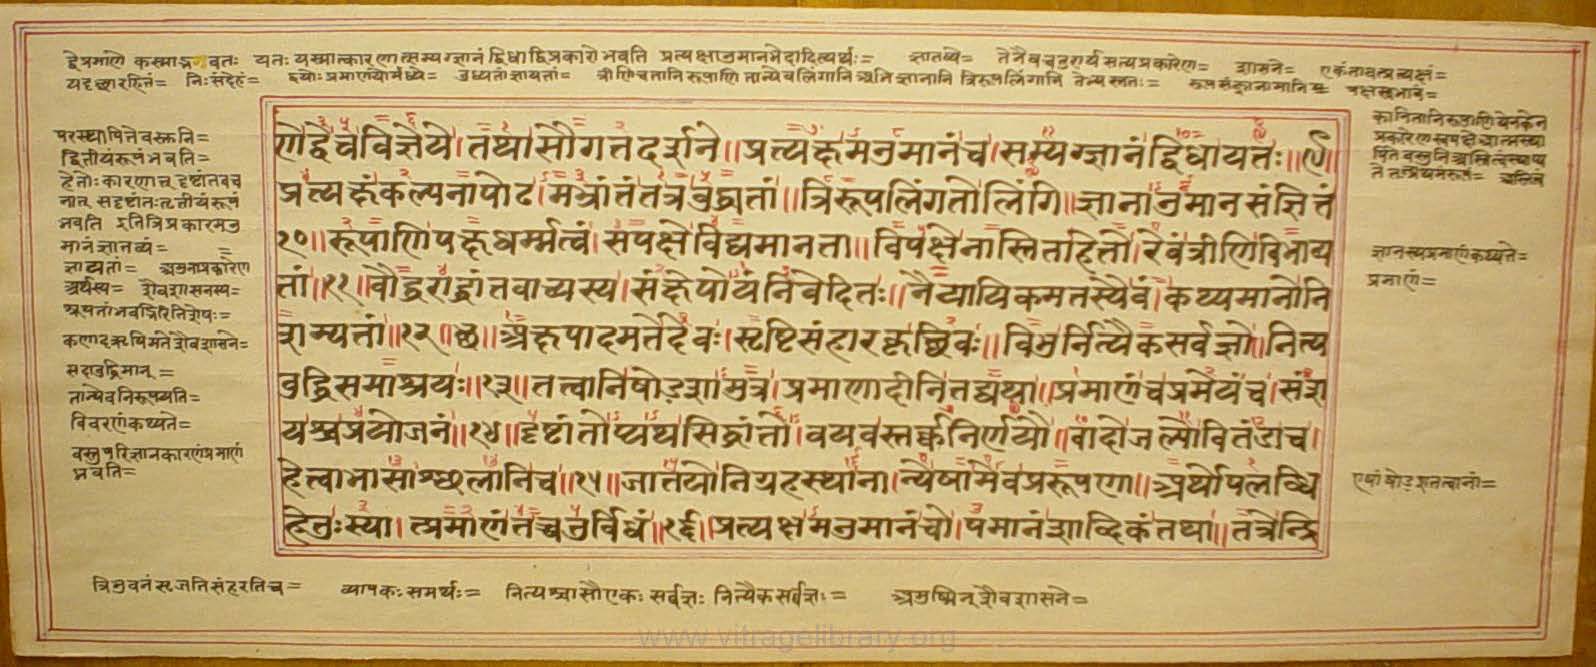 द्वेप्रमाणे कस्माद्भवतः यतः यस्मात्कारणात्सम्यग्ज्ञानं द्विधाद्विप्रकारो भवति प्रत्यक्षानुमानभेदादित्यर्थः= ज्ञातव्ये= तेनैवचतुरार्यसत्यप्रकारेण= शासने= एकंतावत्प्रत्यक्षं=
निःसंदेहं= द्वयोः प्रमाणयोर्मध्ये= बुध्यतांज्ञायतां= त्रीणि तानि रूपाणि
परस्थापितेवस्तुनि=
द्वितीयरूपंभवति=
हेतोः कारणात्
भवति इतित्रिप्रकारमनु
मानंज्ञातव्यं=
ज्ञायतां= अमुनाप्रकारेण
अर्थस्य= शैवशासनस्य=
श्रूयतांभवद्भिरितिशेषः=
कणादऋषिमतेशैवशासने=
सदाबुद्धिमान्=
तान्येवनिरूपयति=
विवरणंकथ्यते=
वस्तुपरिज्ञानकारणंप्रमाणं
भवति=
णेद्वेचविज्ञेये। तथासौगतदर्शने॥ प्रत्यक्षमनुमानंच। सम्यग्ज्ञानंद्विधायतः॥९॥
प्रत्यक्षंकल्पनापोढ। मभ्रांतंतत्रबुद्ध्यतां॥ त्रिरूपलिंगतोलिंगि॥ ज्ञानानुमानसंज्ञितं
१०॥ रूपाणिपक्षधर्म्मत्वं। सपक्षेविद्यमानता॥ विपक्षेनास्तिताहेतो। रेवंत्रीणिविभाव्य
तां॥११॥ बौद्धराद्धांतवाच्यस्य। संक्षेपोयंनिवेदितः॥ नैयायिकमतस्यैवं। कथ्यमानोनि
शम्यतां॥१२॥छ॥ अक्षपादमतेदेवः। सृष्टिसंहारकृच्छिवः॥ विभुर्नित्यैकसर्वज्ञो॥ नित्य
बुद्धिसमाश्रयः॥१३॥ तत्वानिषोडशामुत्र। प्रमाणादीनितद्यथा॥ प्रमाणंचप्रमेयंच। संश
यश्चप्रयोजनं॥१४॥ दृष्टांतोप्यथसिद्धांतो। वयवस्तर्क्कनिर्णयौ॥ वादोजल्पोवितंडाच।
हेत्वाभासाश्छलानिच॥१५॥ जातयोनिग्रहस्थाना। न्येषामेवप्ररूपणा॥ अर्थोपलब्धि
हेतुःस्या। त्प्रमाणंतच्चतुर्विधं॥१६॥ प्रत्यक्षमनुमानंचो। पमानंशाब्दिकंतथा॥ तत्रेन्द्रि
ज्ञानस्यप्रमाणंकथ्यते=
प्रमाणं=
एषांषोडशतत्वानां=
त्रिभुवनंसृजतिसंहरतिच= व्यापकः समर्थः= नित्यश्चासौएकः सर्वज्ञः नित्यैकसर्वज्ञः= अमुष्मिन्शैवशासने=
www.vitragelibrary.org